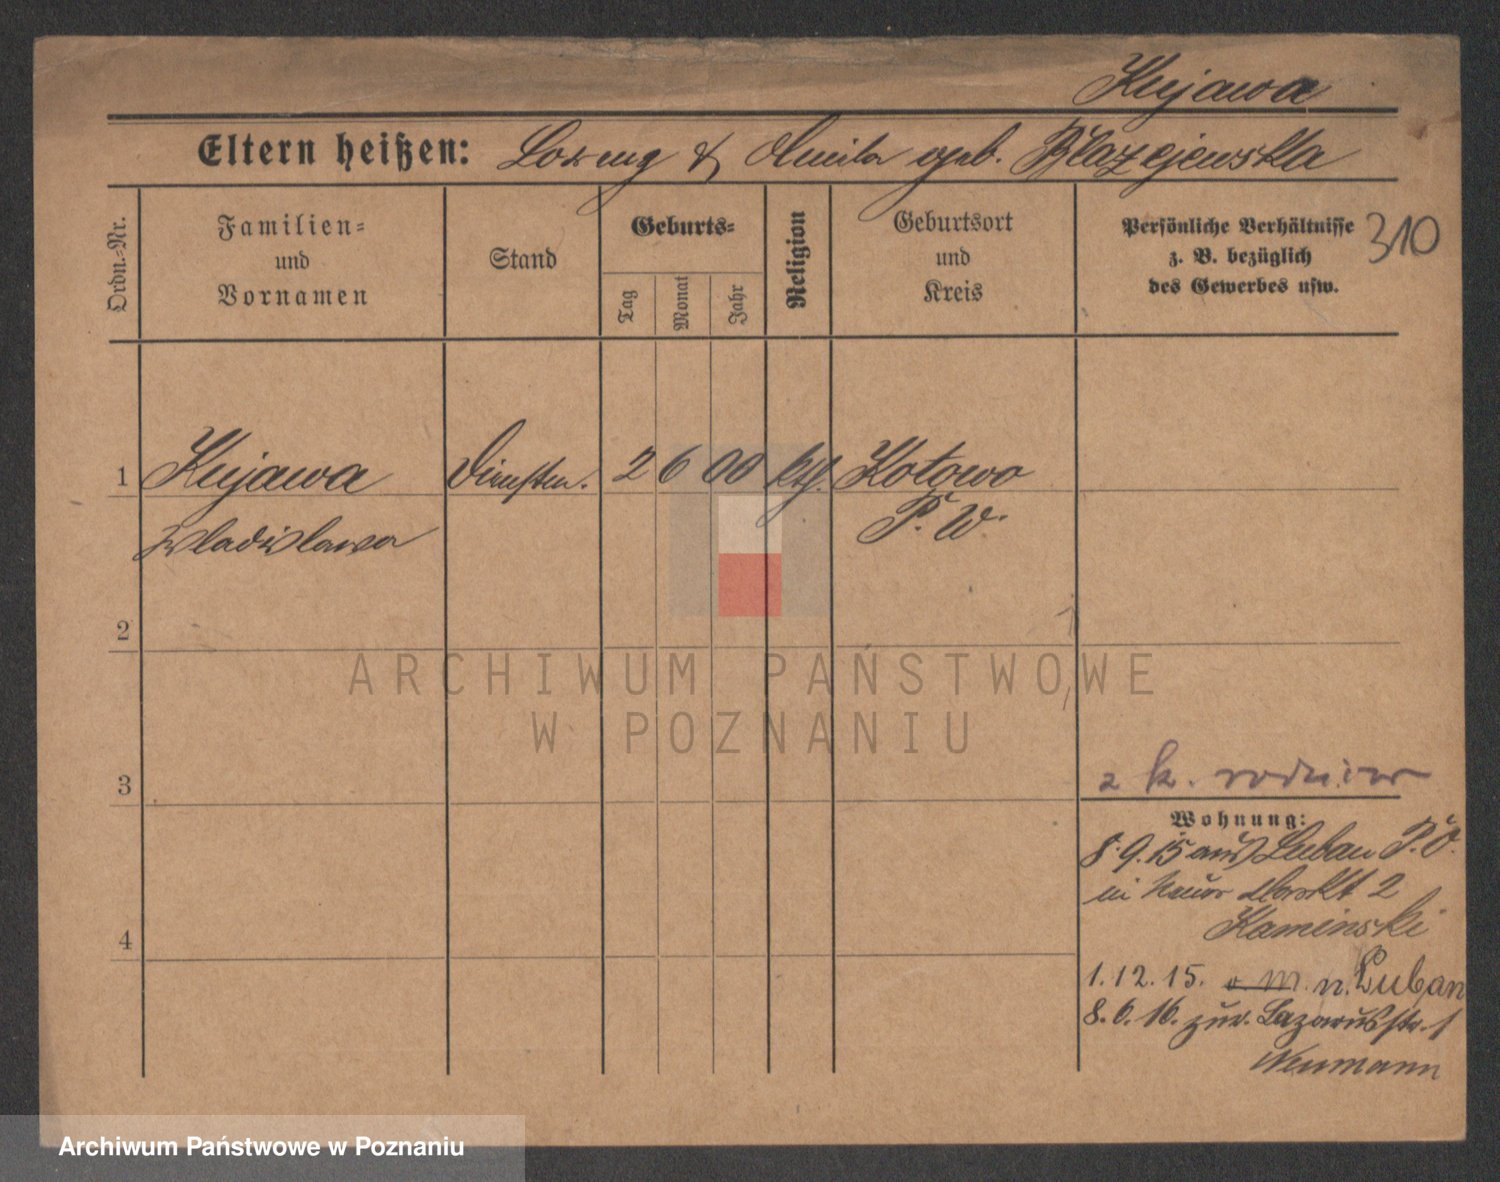 Kujawa
Eltern heißen: Lorenz & Emilia geb. Błażejewska
Ordn.-Nr.
Familien-
und
Vornamen
Stand
Geburts-
Tag
Monat
Jahr
Religion
Geburtsort
und
Kreis
Persönliche Verhältnisse
z. B. bezüglich
des Gewerbes usw.
310
1 Kujawa Dienstm. 2 6 00 kth. Kotowo
Wladislawa P. W.
2
3
4
ARCHIWUM PAŃSTWOWE
W POZNANIU
z k.
Wohnung:
8.9.15 aus Luban P. O.
in Neuer Markt 2
Kaminski
1.12.15. n. Luban
8.6.16. zur. Lazarusstr. 1
Neumann
Archiwum Państwowe w Poznaniu